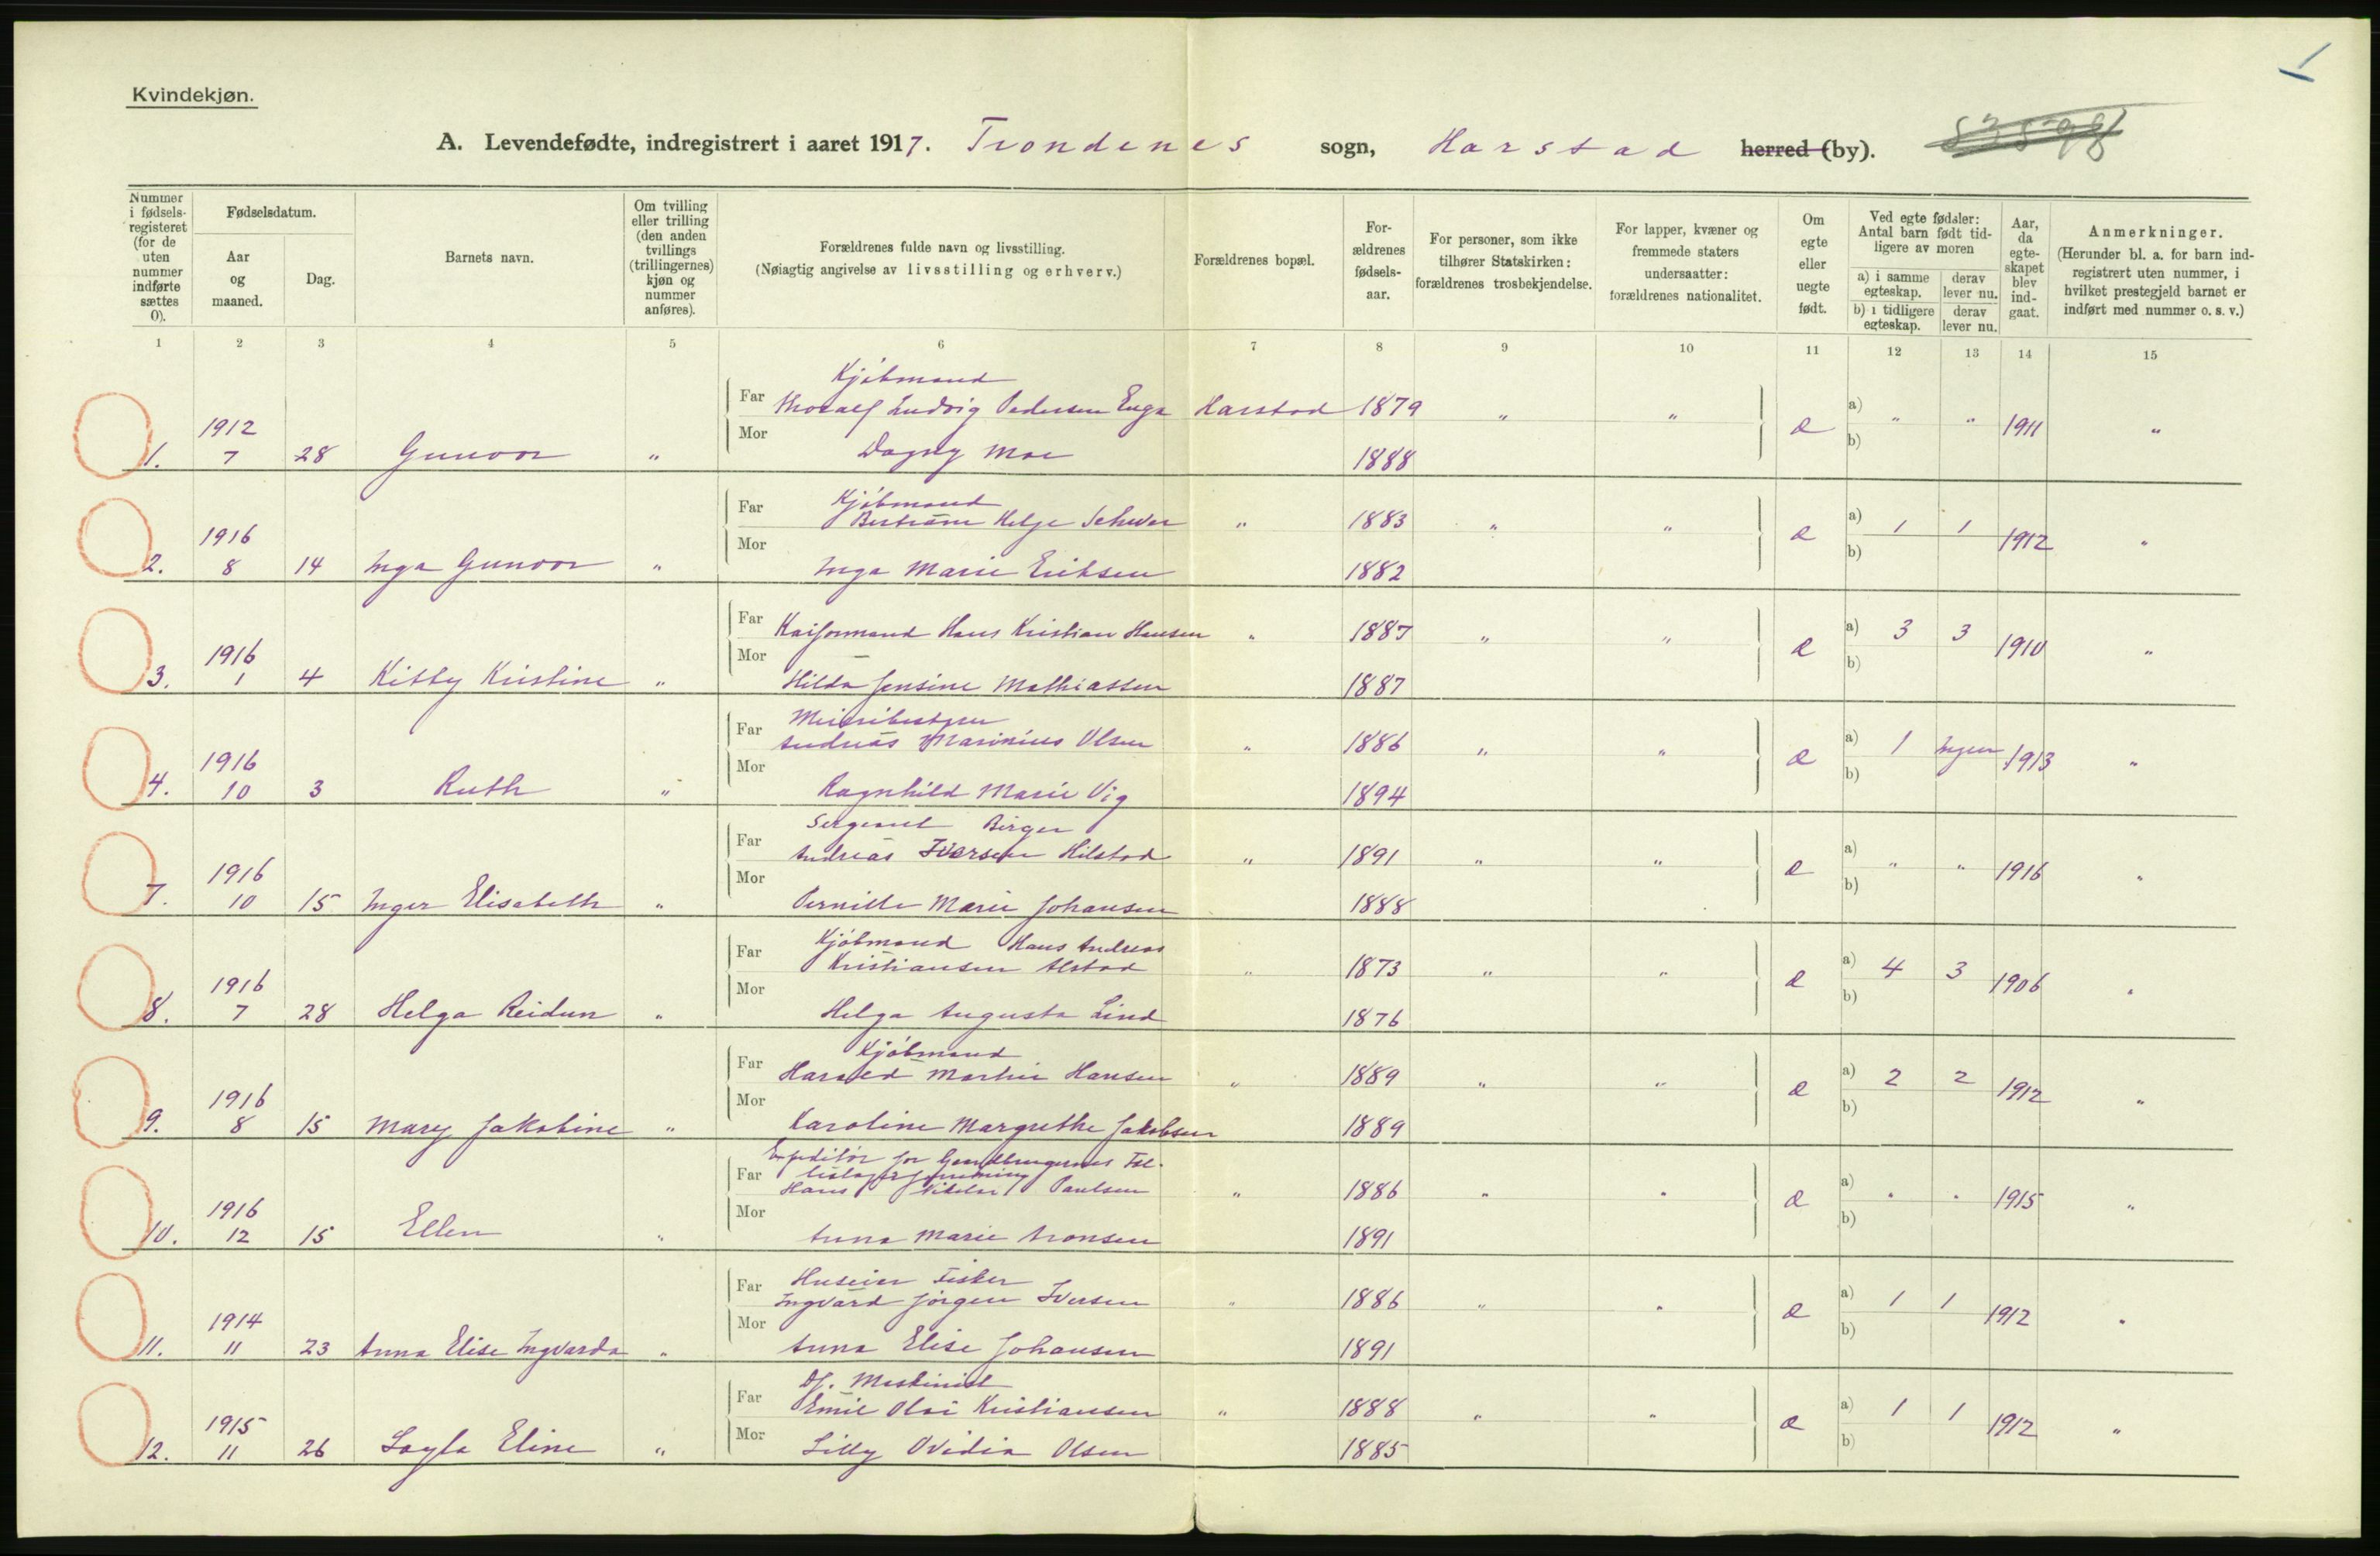 Kvindekjøn.
A. Levendefødte, indregistrert i aaret 1917. Trondenes sogn, Harstad herred (by).
Nummer i fødsels-registeret (for de uten nummer indførte sættes 0).
Fødselsdatum.
Aar og maaned.
Dag.
Barnets navn.
Om tvilling eller trilling (den anden tvillings (trillingernes) kjøn og nummer anføres).
Forældrenes fulde navn og livsstilling.
(Nøiagtig angivelse av livsstilling og erhverv.)
Forældrenes bopæl.
For-ældrenes fødsels-aar.
For personer, som ikke tilhører Statskirken: forældrenes trosbekjendelse.
For lapper, kvæner og fremmede staters undersaatter: forældrenes nationalitet.
Om egte eller uegte født.
Ved egte fødsler: Antal barn født tid-ligere av moren
a) i samme egteskap. derav lever nu.
b) i tidligere egteskap. derav lever nu.
Aar, da egte-skapet blev ind-gaat.
Anmerkninger.
(Herunder bl. a. for barn ind-registrert uten nummer, i hvilket prestegjeld barnet er indført med nummer o. s. v.)
1 2 3 4 5 6 7 8 9 10 11 12 13 14 15
Kjøbmand
Far Thoralf Ludvig Pedersen Enga Harstad 1879 " " a) " "
1912 æ 1911 "
Mor b)
1. 7 28 Gunvor " Dagny Moe 1888
Kjøbmand
Far Helge 1883 " " a) 1 1
1916 " æ 1912 "
Mor b)
2. 8 14 Inga Gunvor " Inga Marie Eriksen 1882
Far Hans Kristian Hansen " 1887 " " a) 3 3
1916 æ 1910 "
Mor b)
3. 1 4 Kitty Kristine " Hilda Jensine Mathiassen 1887
Meieribestyrer
Far Andreas Marinius Olsen " 1886 " " a) 1 Ingen
1916 æ 1913 "
Mor b)
4. 10 3 Ruth " Ragnhild Marie Vig 1894
Sergeant Birger
Far Andreas Iversen Hilstad " 1891 " " a) " "
1916 æ 1916 "
Mor b)
7. 10 15 Inger Elisabeth " Pernille Marie Johansen 1888
Kjøbmand Hans Andreas
Far Kristiansen Alstad " 1873 " " a) 4 3
1916 æ 1906 "
Mor b)
8. 7 28 Helga Reidun " Helga Augusta Lind 1876
Kjøbmand
Far Harald Martin Hansen " 1889 " " a) 2 2
1916 æ 1912 "
Mor b)
9. 8 15 Mary Jakobine " Karoline Margrethe Jakobsen 1889
Expeditør for
Far Hans Nikolai Paulsen " 1886 " " a) " "
1916 æ 1915 "
Mor b)
10. 12 15 Ellen " Anna Marie Aronsen 1891
Huseier Fisker
Far Ingvard Jørgen Iversen " 1886 " " a) 1 1
1914 æ 1912 "
Mor b)
11. 11 23 Anna Elise Ingvarda " Anna Elise Johansen 1891
Df. Maskinist
Far Emil Olai Kristiansen " 1888 " " a) 1 1
1915 æ 1912 "
Mor b)
12. 11 26 Layla Eline " Lilly Ovidia Olsen 1885